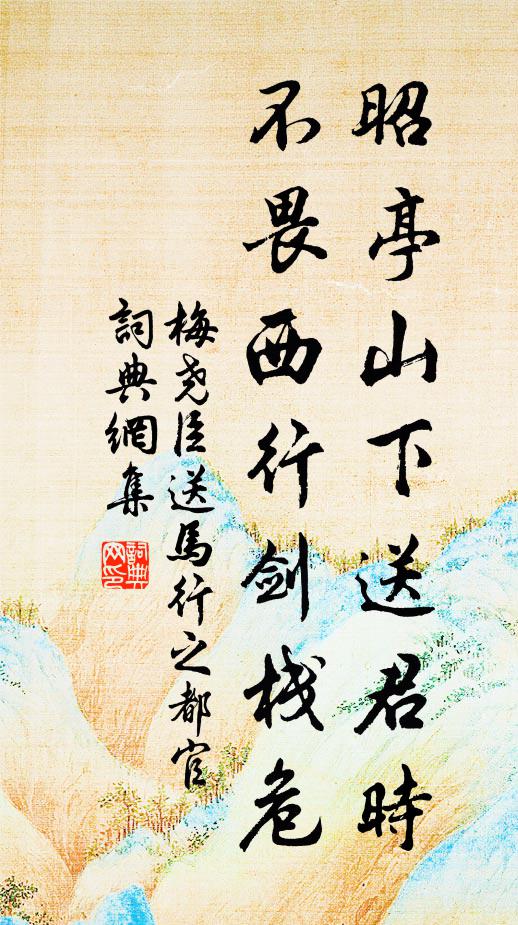 昭亭山下送君時
不畏西行劍棧危
梅尧臣送馬行之都官
詞典網集
詞典
网印